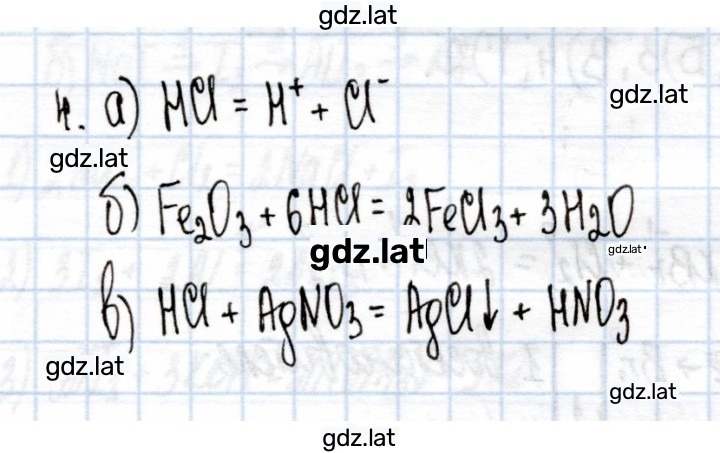 gdz.lat
4. а) HCl = H⁺ + Cl⁻
gdz.lat
gdz.lat
б) Fe₂O₃ + 6HCl = 2FeCl₃ + 3H₂O
gdz.lat
gdz.lat
в) HCl + AgNO₃ = AgCl↓ + HNO₃
gdz.lat
gdz.lat
gdz.lat